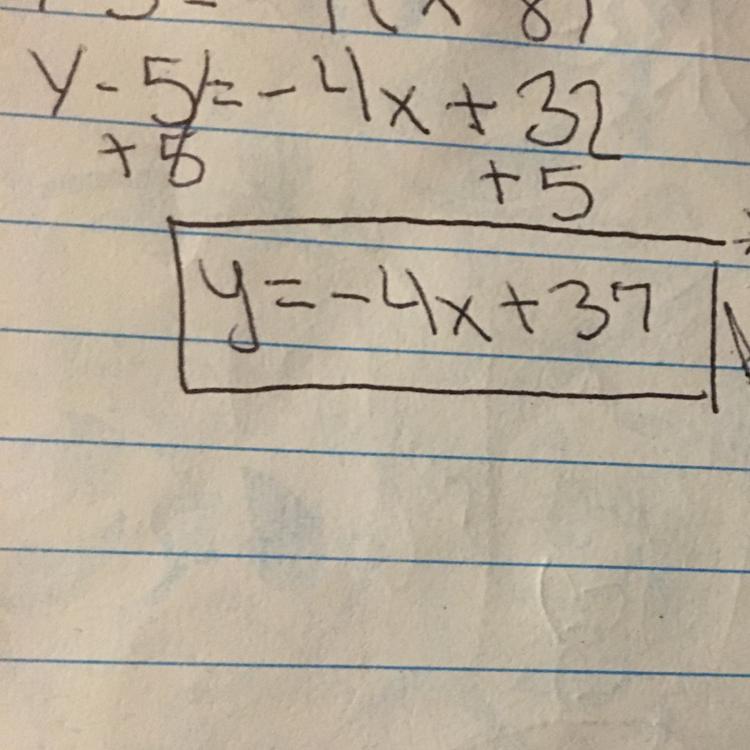 y - 5 = -4x + 32
+ 5 + 5
y = -4x + 37